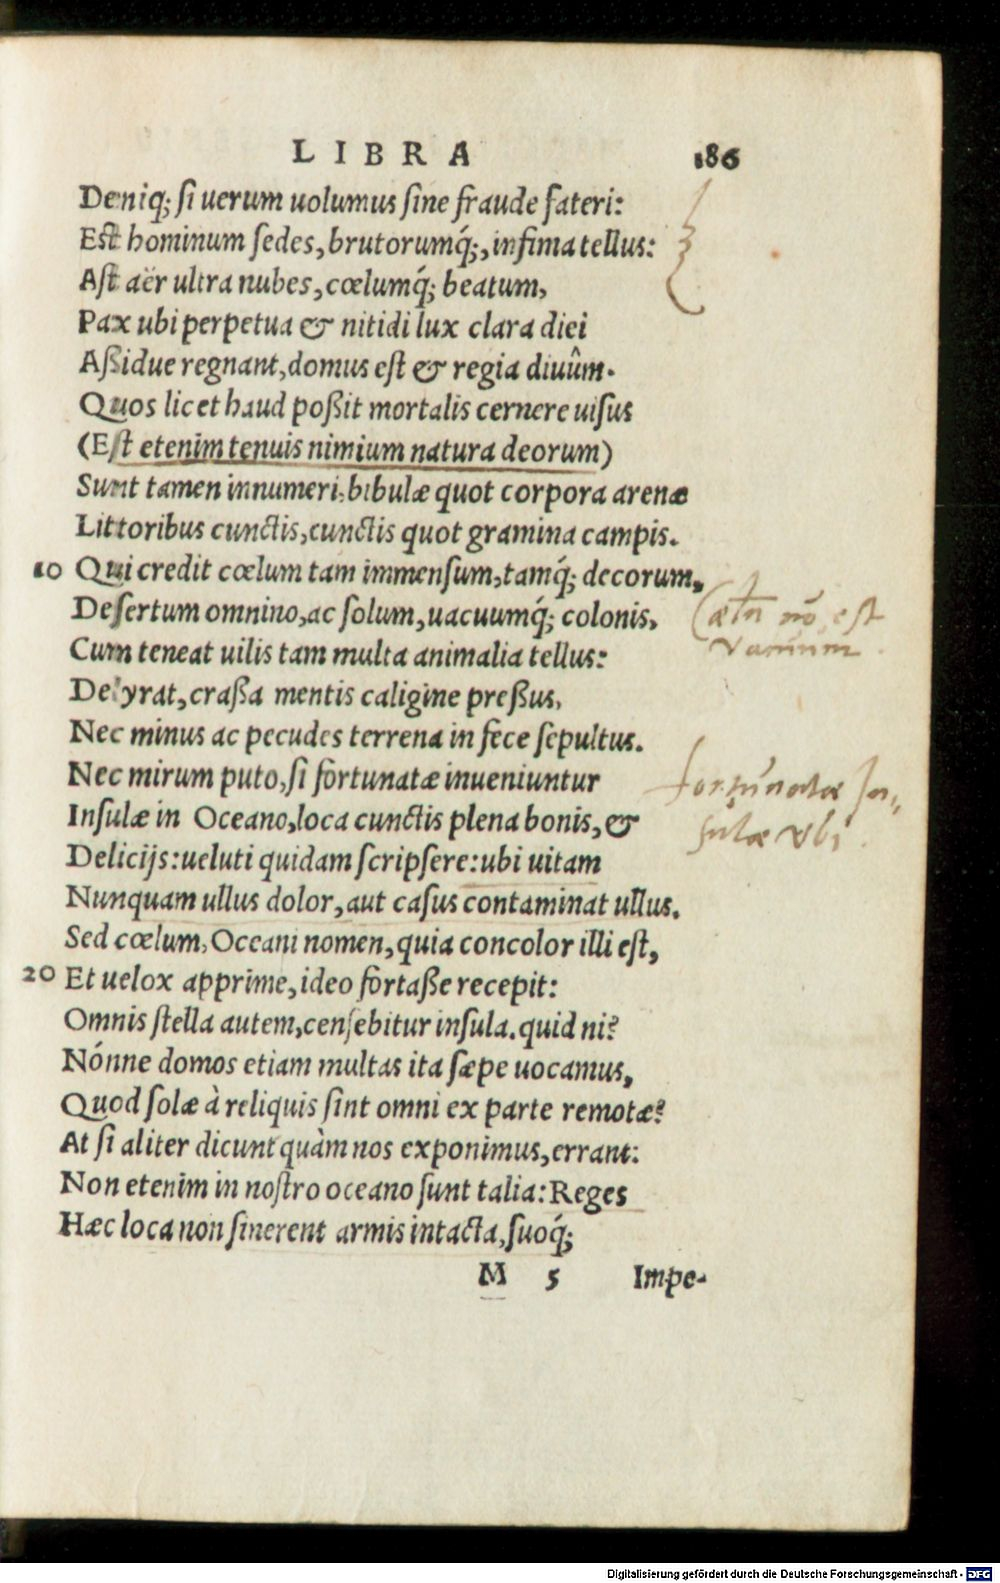 LIBRA 186
Deniq; si uerum uolumus sine fraude fateri:
Est hominum sedes, brutorumq́;, infima tellus:
Ast aër ultra nubes, cœlumq́; beatum,
Pax ubi perpetua & nitidi lux clara diei
Aßidue regnant, domus est & regia diuûm.
Quos licet haud poßit mortalis cernere uisus
(Est etenim tenuis nimium natura deorum)
Sunt tamen innumeri, bibulæ quot corpora arenæ
Littoribus cunctis, cunctis quot gramina campis.
10 Qui credit cœlum tam immensum, tamq́; decorum,
Desertum omnino, ac solum, uacuumq́; colonis,
Cum teneat uilis tam multa animalia tellus:
Delyrat, craßa mentis caligine preßus,
Nec minus ac pecudes terrena in fece sepultus.
Nec mirum puto, si fortunatæ inueniuntur
Insulæ in Oceano, loca cunctis plena bonis, &
Delicijs: ueluti quidam scripsere: ubi uitam
Nunquam ullus dolor, aut casus contaminat ullus.
Sed cœlum, Oceani nomen, quia concolor illi est,
20 Et uelox apprime, ideo fortaße recepit:
Omnis stella autem, censebitur insula. quid ni?
Nónne domos etiam multas ita sæpe uocamus,
Quod solæ à reliquis sint omni ex parte remotæ?
At si aliter dicunt quàm nos exponimus, errant:
Non etenim in nostro oceano sunt talia: Reges
Hæc loca non sinerent armis intacta, suoq́;
M 5 Impe-
est
vacuum
fortunatæ In-
sulæ vbi
Digitalisierung gefördert durch die Deutsche Forschungsgemeinschaft - DFG